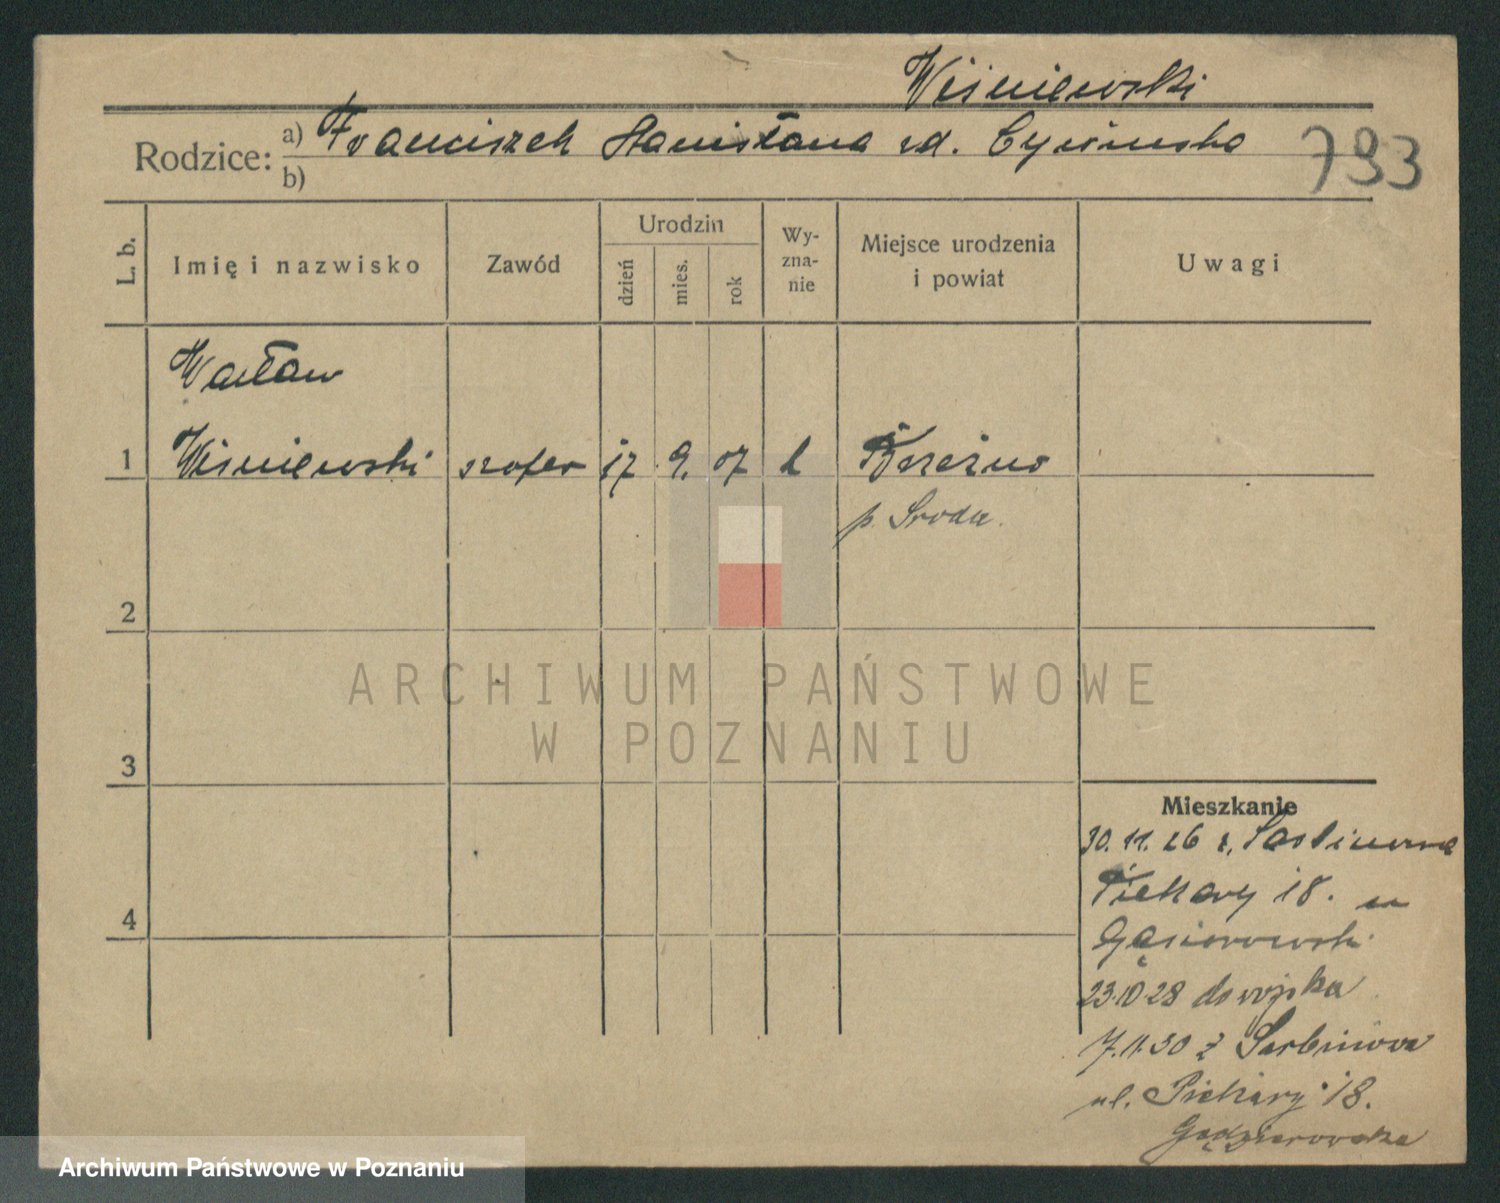 Wiśniewski
Rodzice: a) Franciszek Stanisława zd. Cywińska
b)
793
L. b.
Imię i nazwisko
Zawód
Urodzin
dzień
mies.
rok
Wy-
zna-
nie
Miejsce urodzenia
i powiat
Uwagi
Wacław
1 Wiśniewski szofer 17 9. 07 k Brzeźno
p. Środa.
2
3
4
ARCHIWUM PAŃSTWOWE
W POZNANIU
Mieszkanie
30. 11. 26 z
Piekary 18. u
Gąsiorowski
23.10.28 do wojska
7.11.30 z Sarbinowa
ul. Piekary 18.
Archiwum Państwowe w Poznaniu